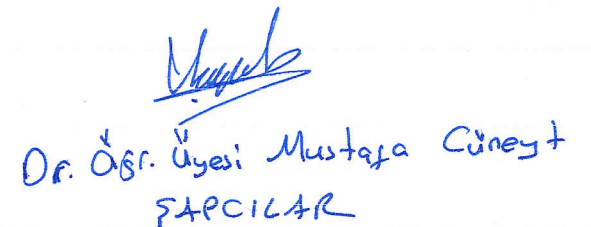 Dr. Öğr. Üyesi Mustafa Cüneyt
ŞAPCILAR